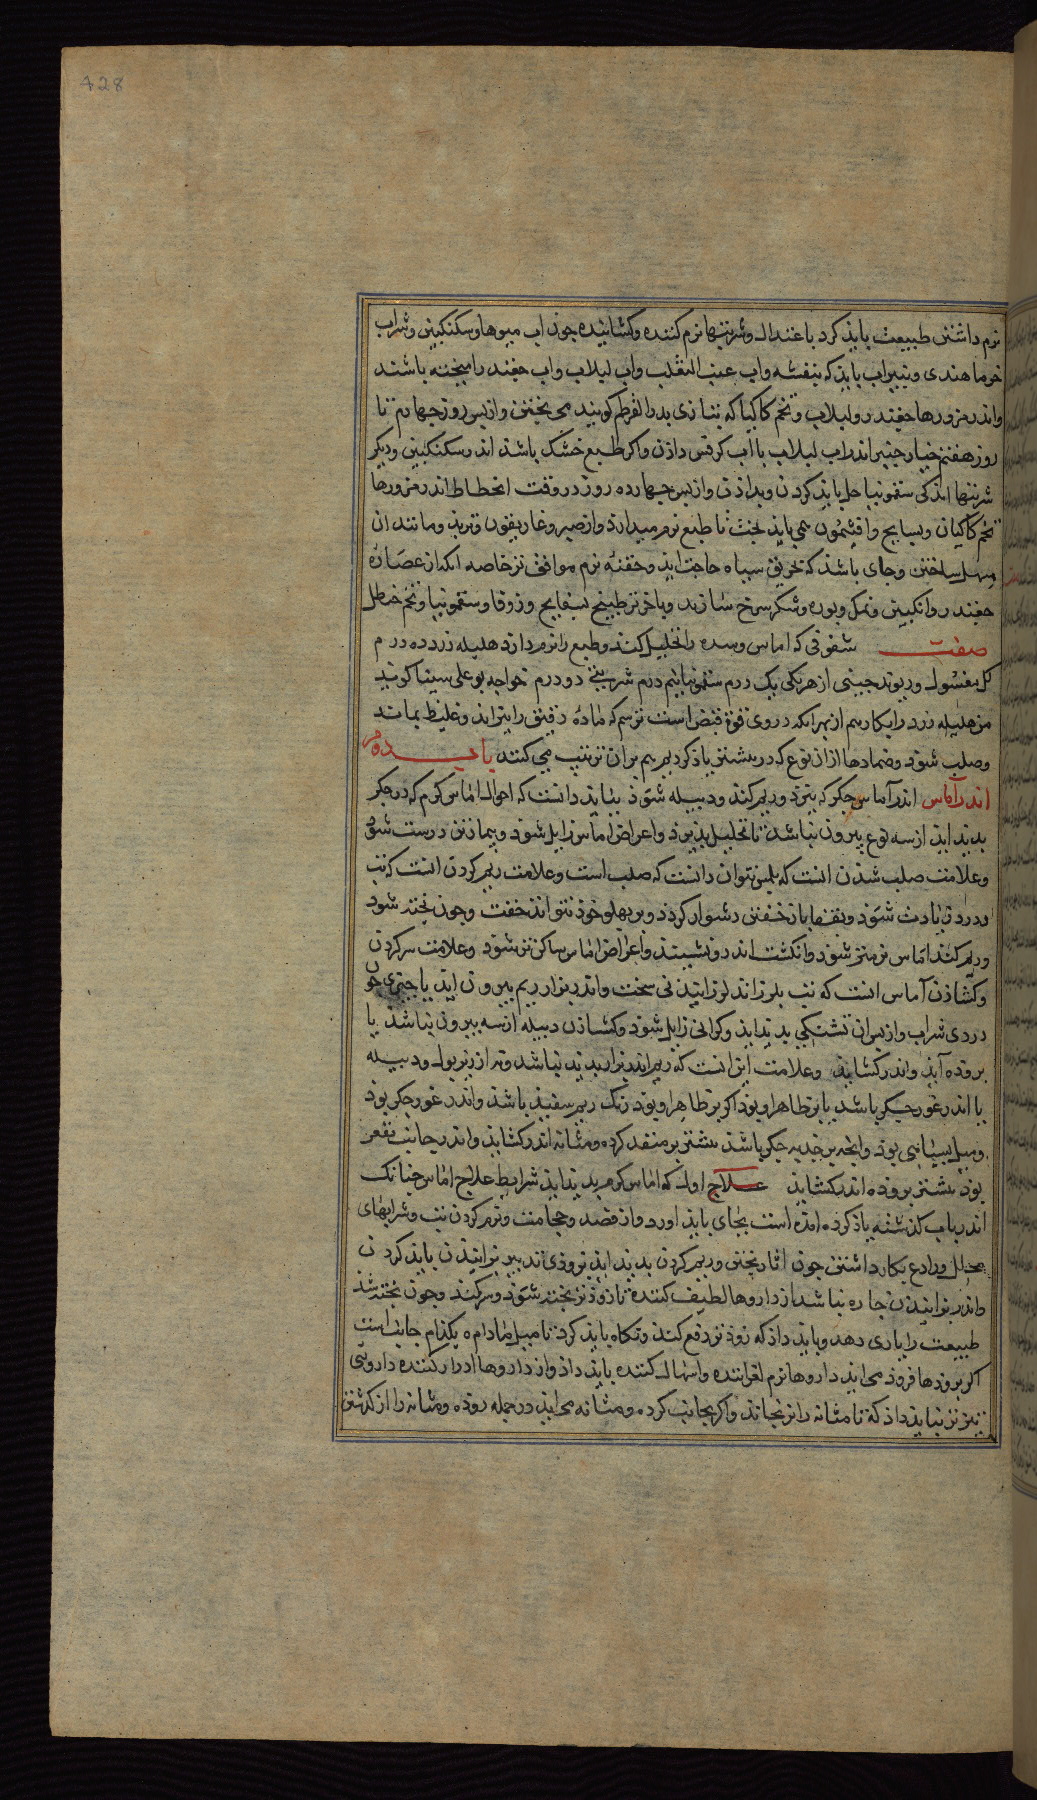 428
نرم داشتن طبیعت باید کرد باعتدال و شربتها نرم کننده و کشاینده چون اب میوها و سکنکبین و شراب
خرما هندی و پنیراب باید که بنفشه واب عنب الثعلب واب لبلاب واب جغندر بامیخته باشند
واندر مزورها جغندر و لبلاب و تخم کاکیا که بتازی بدر القرطم کویند می پختن وازپس روز چهارم تا
روز هفتم خیار چنبر اندراب لبلاب بااب کرفس داذن واکر طبع خشک باشد اندر سکنکبین ودیکر
شربتها اندکی سقمونیا حل باید کردن وبداذن وازپس چهارده روز در وقت انحطاط اندر مزورها
تخم کاکیان وبسبایج وافتیمون می باید پخت تا طبع نرم میدارد وازصبر وغاریقون وتربد ومانند ان
مسهل ساختن وجای باشد که بخربق سیاه حاجت اید وحقنه نرم موافق تر خاصه انکه از عصاره
جغندر وانکبین ونمک وبوره وشکر سرخ سازند وباخر تر طبیخ بسفایج وزوفا وسقمونیا وتخم حنظل
صفت سفوفی که اماس وسده را تحلیل کند وطبع رانرم دارد هلیله زرد ده درم
کل مغسول وریوند چینی از هریکی یک درم سقمونیا نیم درم شربتی دو درم خواجه بوعلی سینا کوید
من هلیله زرد رابکار نبرم از بهر انکه در وی قوة قبض است ترسم که ماده رقیق را ببراند وغلیظ بماند
وصلب شود وضمادها ازان نوع که در پیشتر یاذ کردیم هم بران ترتیب می کنند باب
اندر آماس اندر آماس جکر که بپزد وریم کند ودبیله شود بباید دانست که احوال اماس کرم که در جکر
بدید اید از سه نوع بیرون نباشد تا تحلیل پذیرد واعراض اماس زایل شود وبیمار تن درست شود
وعلامت صلب شدن انست که بلمس بتوان دانست که صلب است وعلامت ریم کردن انست که تب
ودرد زیادت شود وبقفا باز خفتن دشوار کردد وبرپهلو خود نتواند خفت وچون پخته شود
وریم کند اماس نرمتر شود وانکشت اندرو نشیند واعراض اماس ساکن تر شود وعلامت سرکردن
وکشاذن آماس انست که تب بلرزاند لرزانیدنی سخت واندر براز ریم بیرون اید یا چیزی چون
دردی شراب وازپس ان تشنکی بدید اید وکرانی زایل شود وکشاذن دبیله از سه بیرون نباشد یا
بروده آید واندر کشاید وعلامت این انست که ریم اندر براز بدید نباشد ونه اندر بول ودبیله
یا اندر غور جیکر باشد یا بر ظاهر او بود اکر بر ظاهر او بود رنک ریم سفید باشد واندر غور جکر بود
ومیل بسیاهی بود وانچه بر حدبه جکر باشد بیشتر بر منفذ کرده ومثانه اندر کشاید واندر جانب مقعر
بود بیشتر بروده اندر کشاید علاج اول که اماس کرم بدید اید شرایط علاج اماس چنانک
اندر باب کذشته یاذ کرده امده است بجای باید اورد واز فصد وحجامت ونرم کردن تب وشرابهای
محلل ورادع بکار داشتن چون اثار پختن وریم کردن بدید اید بزودی تدبیر پزانیدن باید کردن
واندر پزانیدن چاره نباشد از داروها لطیف کننده تا زوذ تر پخته شود وسر کند وچون پخته شد
طبیعت را یاری دهد وباید داد که زوذ تر دفع کند ونکاه باید کرد تا میل ماده بکدام جانب است
اکر بروذها فروذ می اید داروها نرم لغزاننده واسهال کننده باید داذ واز داروها ادرار کننده داروئی
تیز تر نباید داذ که تا مثانه را نرنجاند واکر بجانب کرده ومثانه می اید در جمله روده ومثانه را از کذشتن